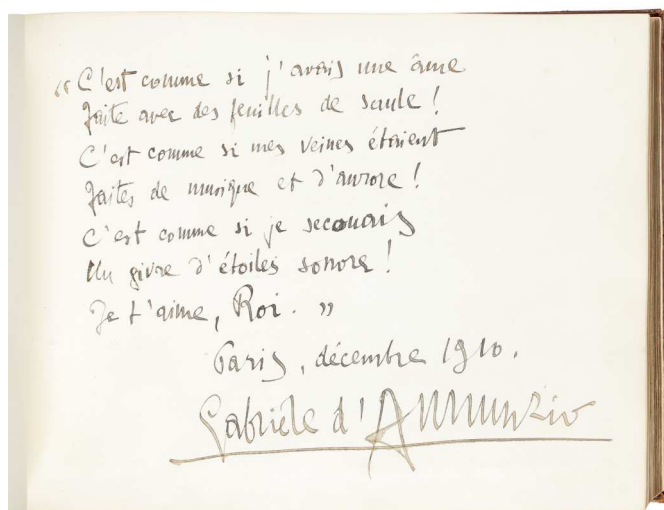 “ C'est comme si j'avais une âme
faite avec des feuilles de saule !
C'est comme si mes veines étaient
faites de musique et d'aurore !
C'est comme si je secouais
Un givre d'étoiles sonore !
Je t'aime, Roi. ”
Paris, décembre 1910.
Gabriele d'Annunzio